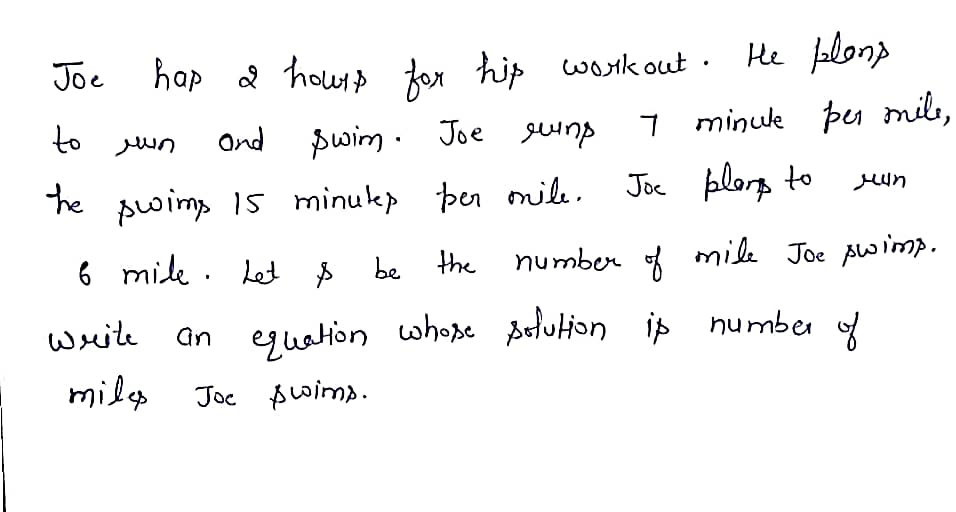 Joe has 2 hours for his workout. He plans
to run and swim. Joe runs 7 minute per mile,
he swims 15 minutes per mile. Joe plans to run
6 mile. Let s be the number of mile Joe swims.
write an equation whose solution is number of
miles Joe swims.